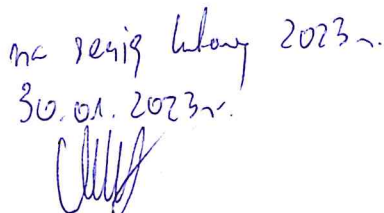 na sesję lutową 2023 r.
30.01.2023 r.